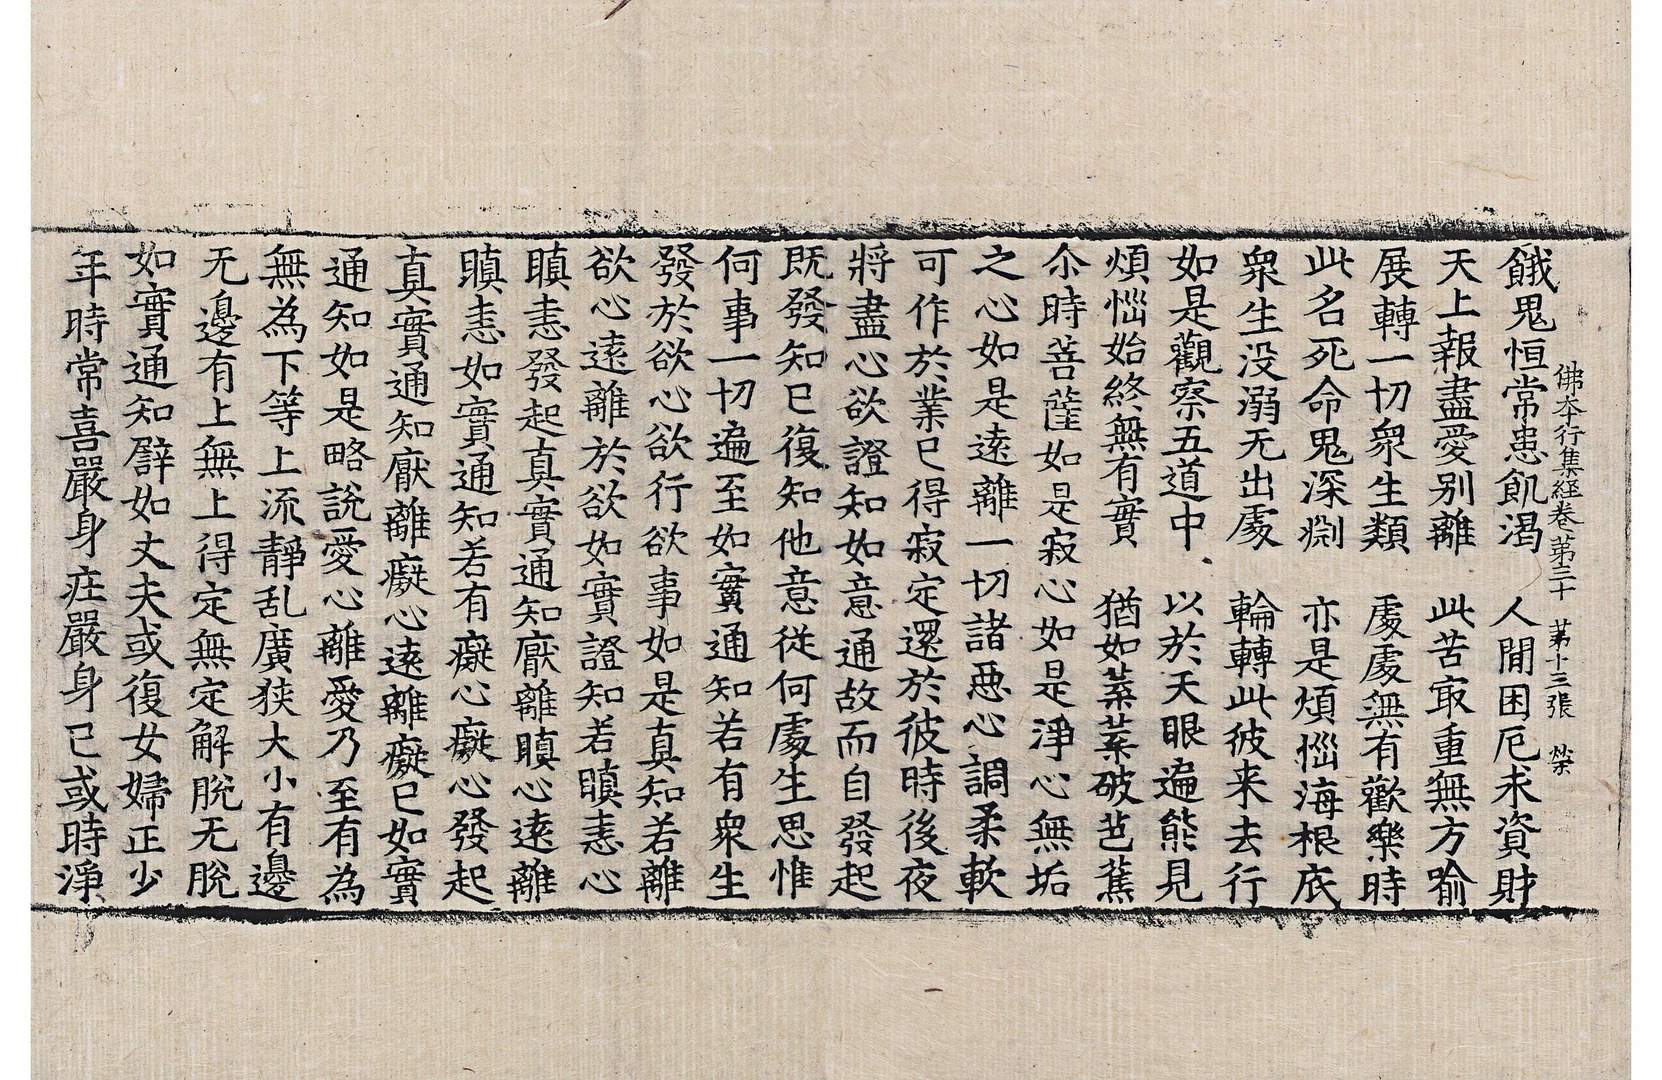 佛本行集經卷第三十 第十三張 榮
餓鬼恒常患飢渴 人間困厄求資財
天上報盡愛別離 此苦㝡重無方喻
展轉一切衆生類 處處無有歡樂時
此名死命鬼深㴊 亦是煩惱海根底
衆生没溺无出處 輪轉此彼来去行
如是觀察五道中 以於天眼遍能見
煩惱始終無有實 猶如蓁蓁破芭蕉
尒時菩薩如是寂心如是淨心無垢
之心如是遠離一切諸惡心調柔軟
可作於業已得寂定還於彼時後夜
將盡心欲證知如意通故而自發起
既發知已復知他意從何處生思惟
何事一切遍至如實通知若有衆生
發於欲心欲行欲事如是真知若離
欲心遠離於欲如實證知若瞋恚心
瞋恚發起真實通知厭離瞋心遠離
瞋恚如實通知若有癡心癡心發起
真實通知厭離癡心遠離癡已如實
通知如是略說愛心離愛乃至有為
無為下等上流靜乱廣狭大小有邊
无邊有上無上得定無定解脫无脫
如實通知譬如丈夫或復女婦正少
年時常喜嚴身庄嚴身已或時淨